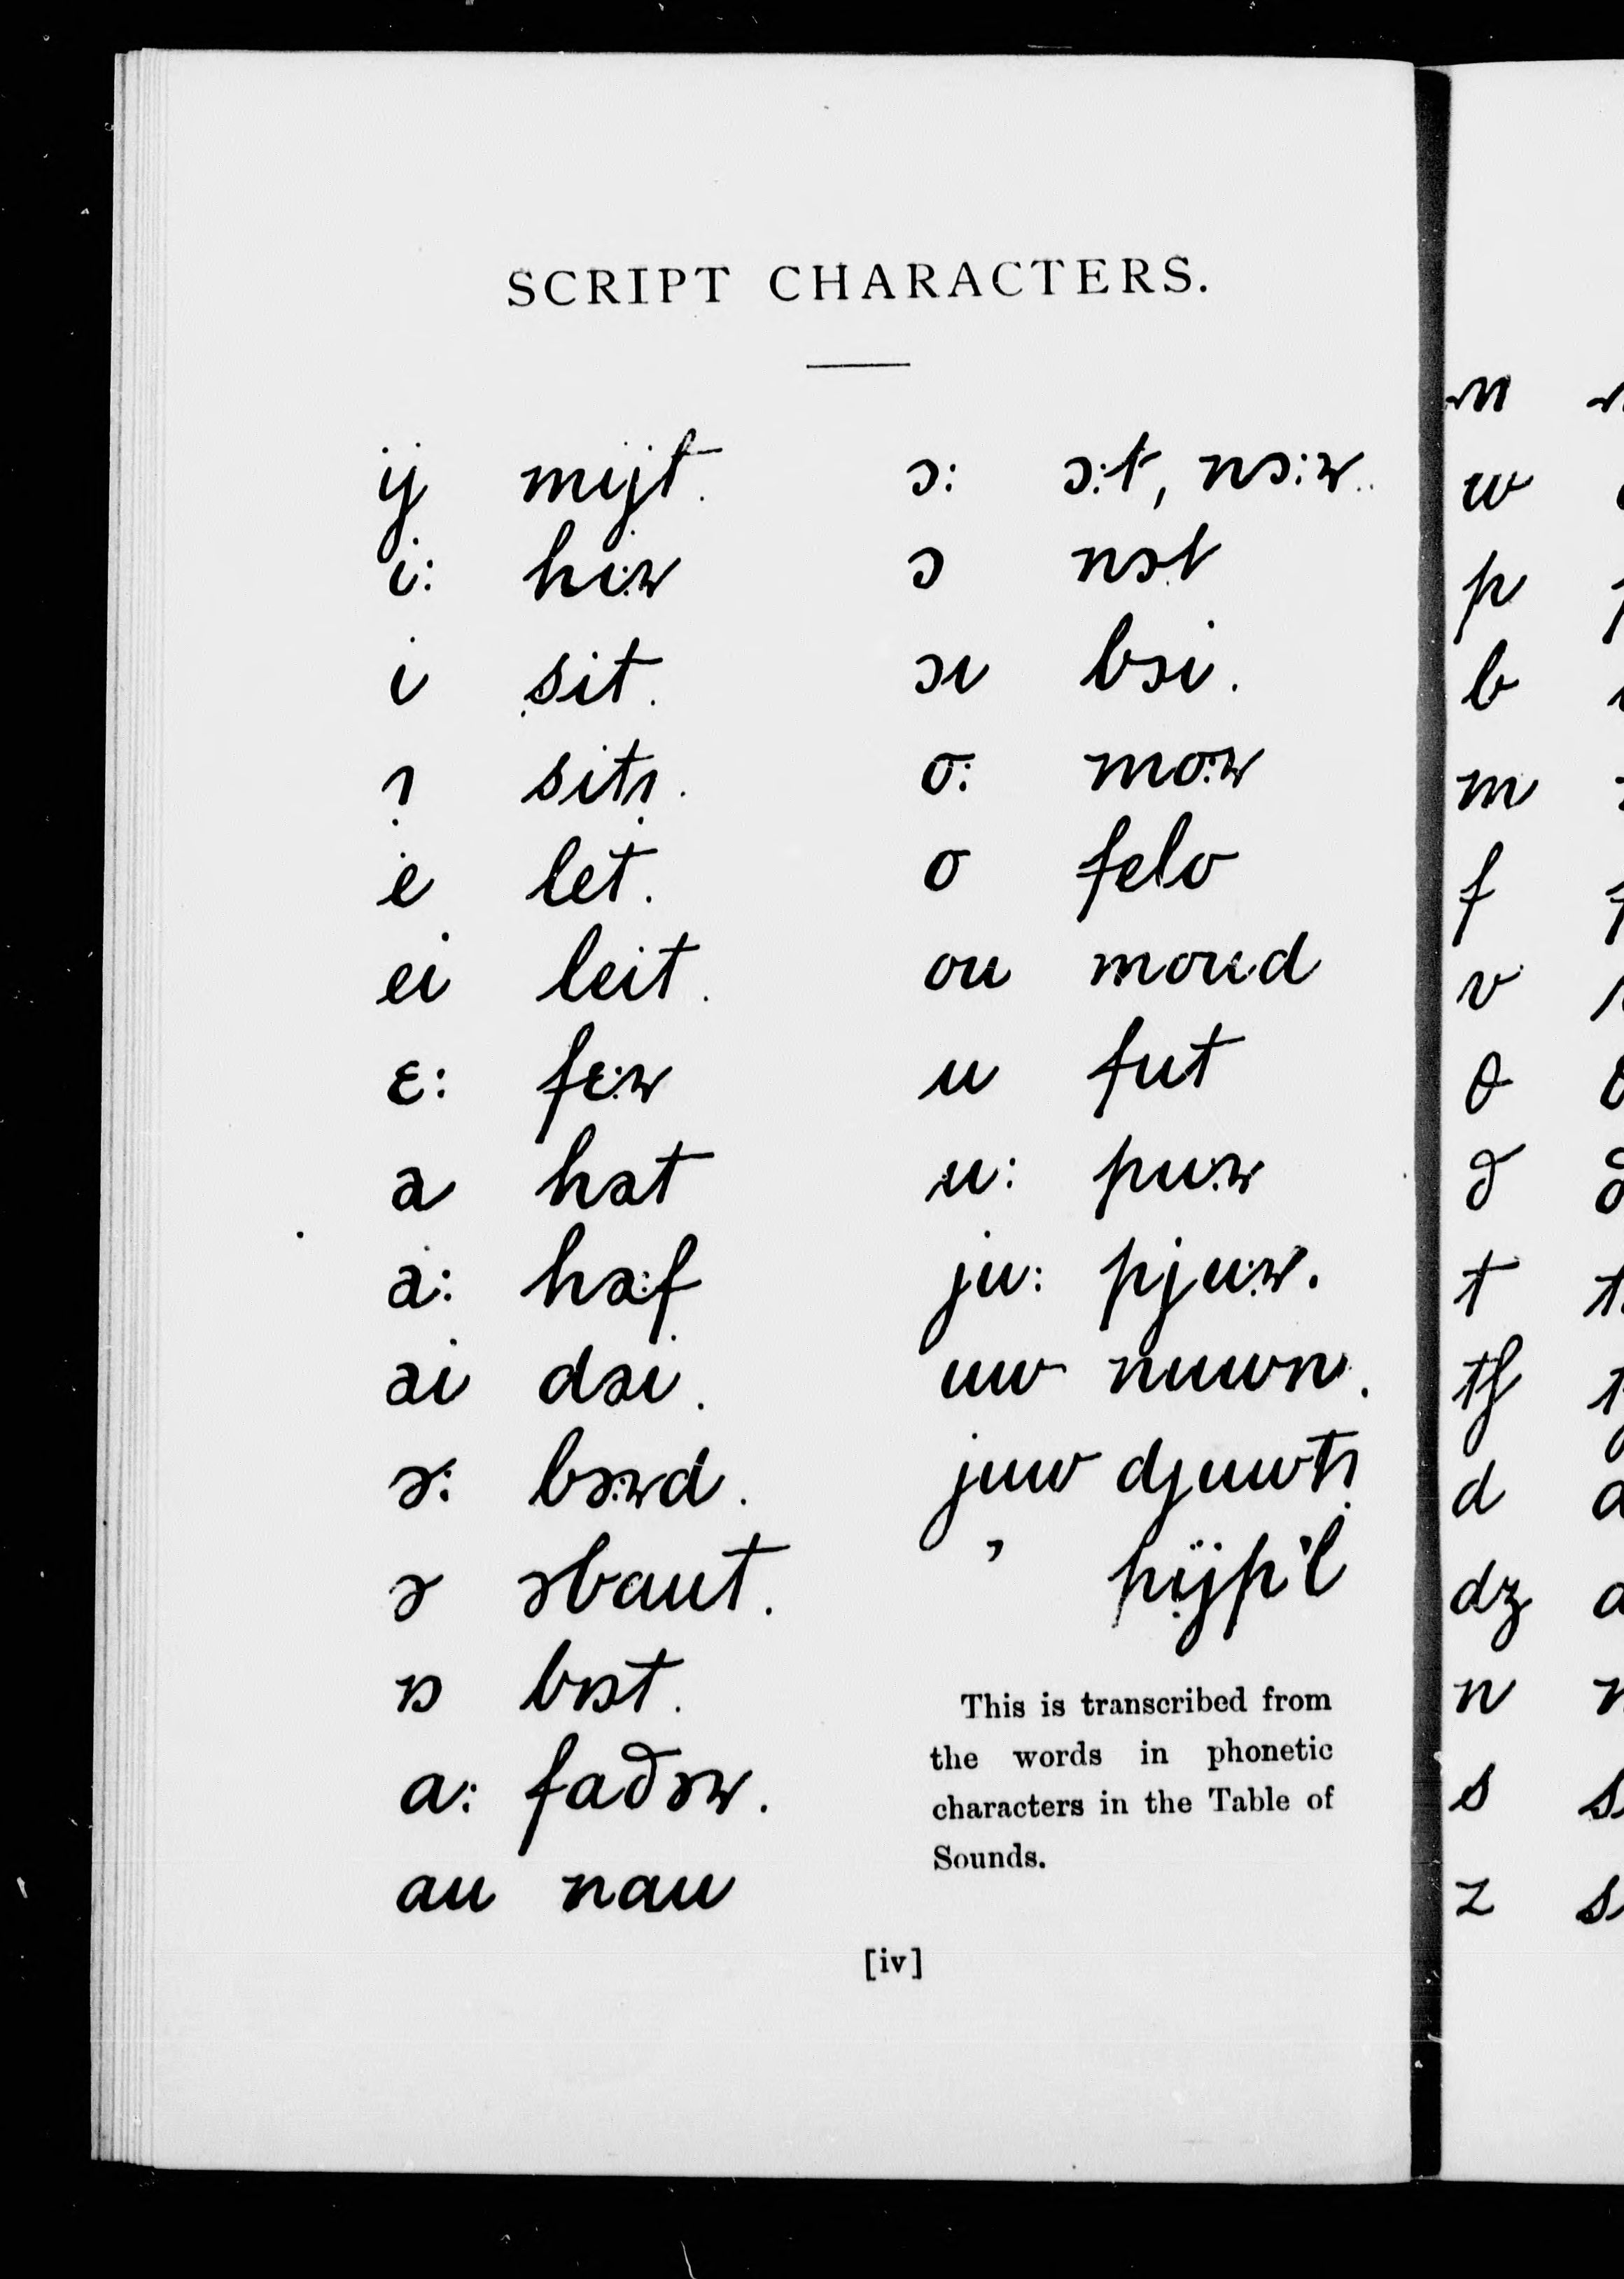 SCRIPT CHARACTERS.
ij mijt.
i: hi:ɹ
i sit.
sit
e let.
ei leit.
ɛ: fɛ:ɹ
a hat
a: ha:f
ai dai.
ə: bə:ɹd.
ə əbaut.
bɐt.
ɑ: fɑðəɹ.
ɑu nɑu
ɔ: ɔ:t, nɔ:ɹ.
ɔ nɔt
ɔi bɔi.
o: mo:ɹ
o felo
ou moud
u fut
u: pu:ɹ
ju: pju:ɹ.
uw nuwn.
juw
’ pijp'l
This is transcribed from
the words in phonetic
characters in the Table of
Sounds.
[iv]
n
w
p
b
m
f
v
θ
ð
t
tʃ
d
dʒ
n
s
z